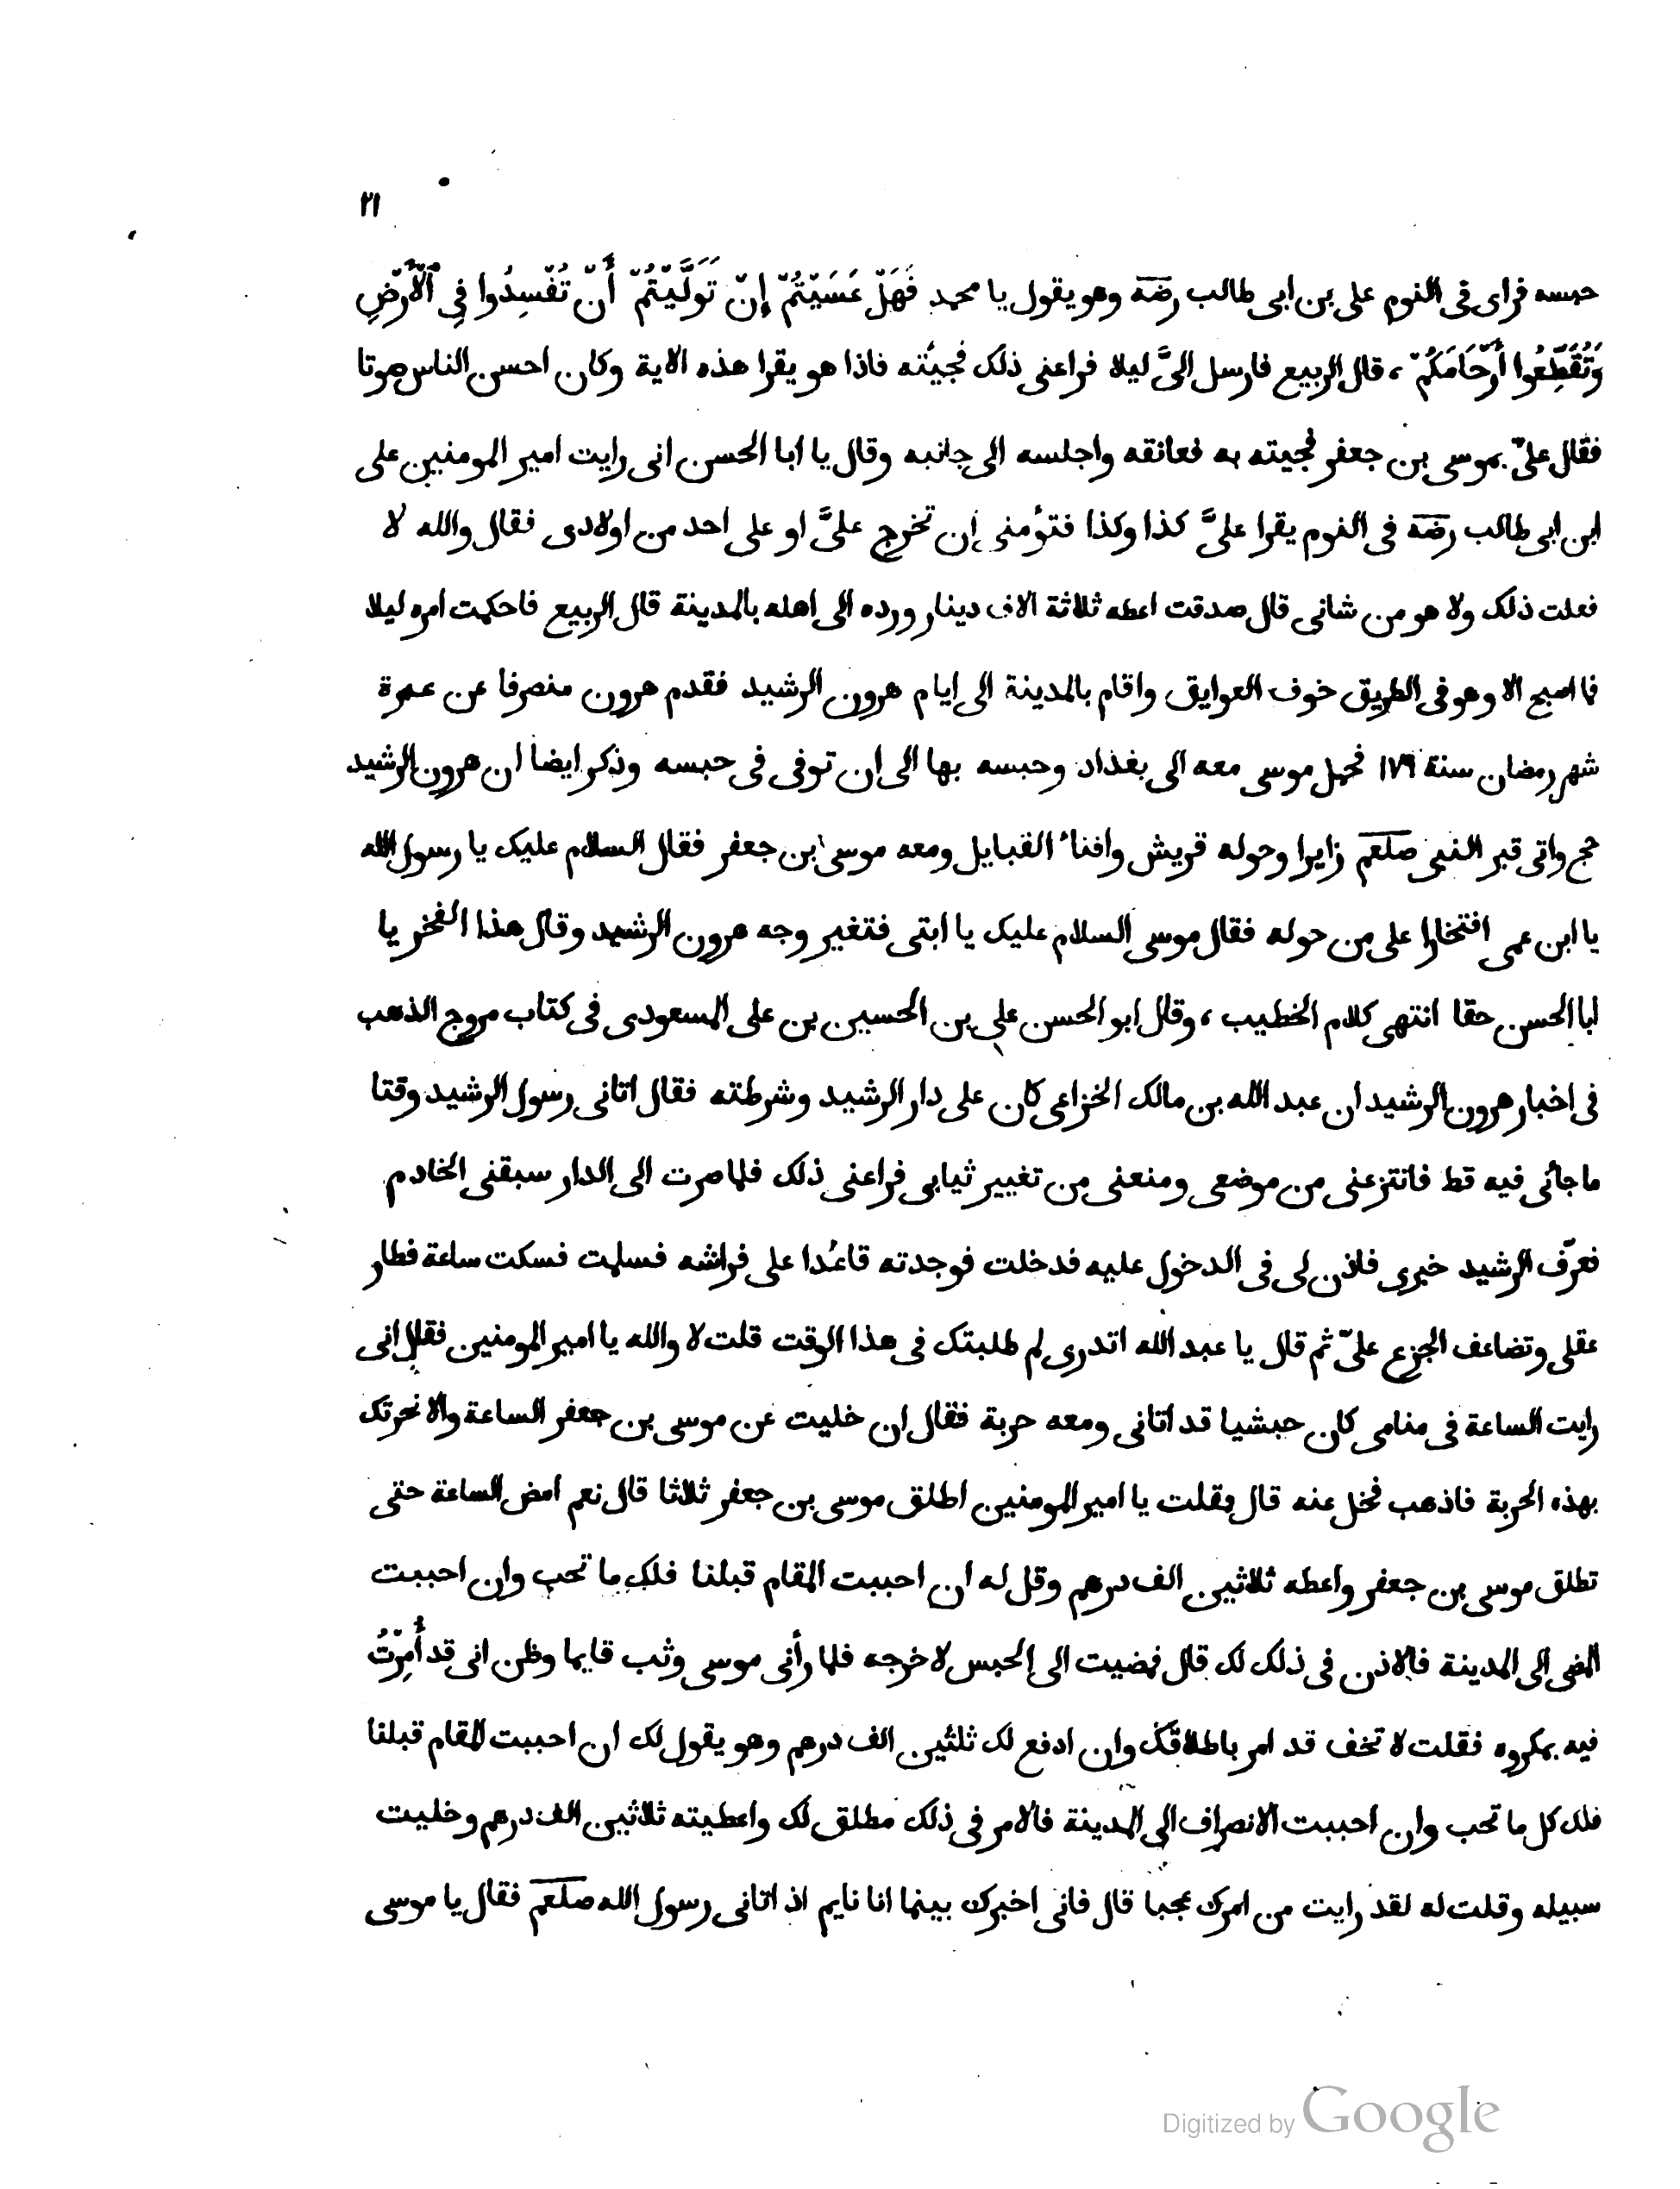 ٢١
حبسه فراى فى النوم على بن ابى طالب رضه وهو يقول يا محمد فَهَلْ عَسَيْتُمْ إِنْ تَوَلَّيْتُمْ أَنْ تُفْسِدُوا فِى ٱلْأَرْضِ
وَتُقَطِّعُوا أَرْحَامَكُمْ ، قال الربيع فارسل الىَّ ليلا فراعنى ذلك فجيئته فاذا هو يقرا هذه الاية وكان احسن الناس صوتا
فقال علىّ بموسى بن جعفر فجيته به فعانقه واجلسه الى جانبه وقال يا ابا الحسن انى رايت امير المومنين على
ابن ابى طالب رضه فى النوم يقرا علىَّ كذا وكذا فتؤمنى ان تخرج علىَّ او على احد من اولادى فقال والله لا
فعلت ذلك ولا هو من شانى قال صدقت اعطه ثلاثة الاف دينار ورده الى اهله بالمدينة قال الربيع فاحكمت امره ليلا
فا اصبح الا وهو فى الطريق خوف العوايق واقام بالمدينة الى ايام هرون الرشيد فقدم هرون منصرفا عن عمرة
شهر رمضان سنة ١٧٩ فحمل موسى معه الى بغداد وحبسه بها الى ان توفى فى حبسه وذكر ايضا ان هرون الرشيد
حج واتى قبر النبى صلعم زايرا وحوله قريش وافناء القبايل ومعه موسى بن جعفر فقال السلام عليك يا رسول الله
يا ابن عمى افتخارا على من حوله فقال موسى السلام عليك يا ابتى فتغير وجه هرون الرشيد وقال هذا الفخر يا
ابا الحسن حقا انتهى كلام الخطيب ، وقال ابو الحسن على بن الحسين بن على المسعودى فى كتاب مروج الذهب
فى اخبار هرون الرشيد ان عبد الله بن مالك الخزاعى كان على دار الرشيد وشرطته فقال اتانى رسول الرشيد وقتا
ما جائى فيه قط فانتزعنى من موضعى ومنعنى من تغيير ثيابى فراعنى ذلك فلما صرت الى الدار سبقنى الخادم
فعرّف الرشيد خبرى فاذن لى فى الدخول عليه فدخلت فوجدته قاعدا على فراشه فسلمت فسكت ساعة فطار
عقلى وتضاعف الجزع علىّ ثم قال يا عبد الله اتدرى لم طلبتك فى هذا الوقت قلت لا والله يا امير المومنين فقال انى
رايت الساعة فى منامى كان حبشيا قد اتانى ومعه حربة فقال ان خليت عن موسى بن جعفر الساعة والا نحرتك
بهذه الحربة فاذهب فخل عنه قال فقلت يا امير المومنين اطلق موسى بن جعفر ثلاثا قال نعم امض الساعة حتى
تطلق موسى بن جعفر واعطه ثلاثين الف درهم وقل له ان احببت المقام قبلنا فلك ما تحب وان احببت
المضى الى المدينة فالاذن فى ذلك لك قال فمضيت الى الحبس لاخرجه فلما رأنى موسى وثب قايما وظن انى قد أُمِرْتُ
فيه بمكروه فقلت لا تخف قد امر باطلاقك وان ادفع لك ثلثين الف درهم وهو يقول لك ان احببت المقام قبلنا
فلك كل ما تحب وان احببت الانصراف الى المدينة فالامر فى ذلك مطلق لك واعطيته ثلاثين الف درهم وخليت
سبيله وقلت له لقد رايت من امرك عجبا قال فانى اخبرك بينما انا نايم اذ اتانى رسول الله صلعم فقال يا موسى
Digitized by Google